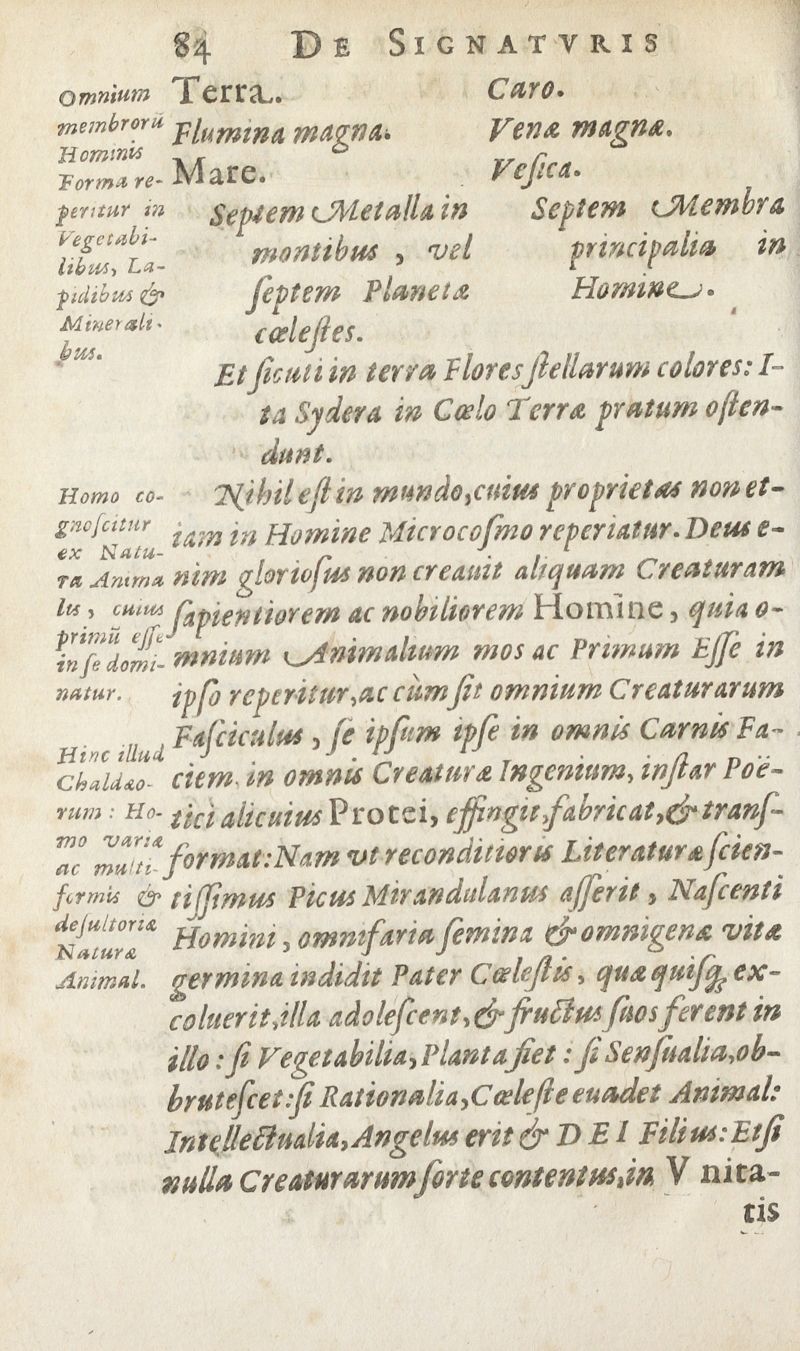 84 DE SIGNATVRIS
Omnium
membrorū
Hominis
Forma re-
peritur in
Vegetabi-
libus, La-
pidibus &
Minerali-
bus.
Terra. Caro.
Flumina magna. Venæ magnæ.
Mare. Veſica.
Septem Metalla in
montibus , vel
ſeptem Planetæ
cœleſtes.
Septem Membra
principalia in
Homine.
Et ſicuti in terra Flores ſtellarum colores: I-
ta Sydera in Cœlo Terræ pratum oſten-
dunt.
Homo co-
gnoſcitur
ex Natu-
ra Anima
lis , cuius
primū eſſe
in ſe domi-
natur.
Nihil eſt in mundo,cuius proprietas non et-
iam in Homine Microcoſmo reperiatur. Deus e-
nim glorioſus non creauit aliquam Creaturam
ſapientiorem ac nobiliorem Homine , quia o-
mnium Animalium mos ac Primum Eſſe in
ipſo reperitur,ac cùm ſit omnium Creaturarum
Faſciculus , ſe ipſum ipſe in omnis Carnis Fa-
ciem, in omnis Creaturæ Ingenium, inſtar Poë-
tici alicuius Protei, effingit,fabricat,& tranſ-
format: Nam vt reconditioris Literaturæ ſcien-
tiſſimus Picus Mirandulanus aſſerit , Naſcenti
Homini , omnifaria ſemina & omnigenæ vitæ
germina indidit Pater Cœleſtis , quæ quiſq; ex-
coluerit,illa adoleſcent,& fructus ſuos ferent in
illo : ſi Vegetabilia, Planta fiet : ſi Senſualia,ob-
bruteſcet: ſi Rationalia, Cœleſte euadet Animal:
Intellectualia, Angelus erit & DEI Filius: Et ſi
nulla Creaturarum ſorte contentus,in Vnita-
tis
Hinc illud
Chaldæo-
rum : Ho-
mo variæ
ac multi-
formis &
deſultoriæ
Naturæ
Animal.